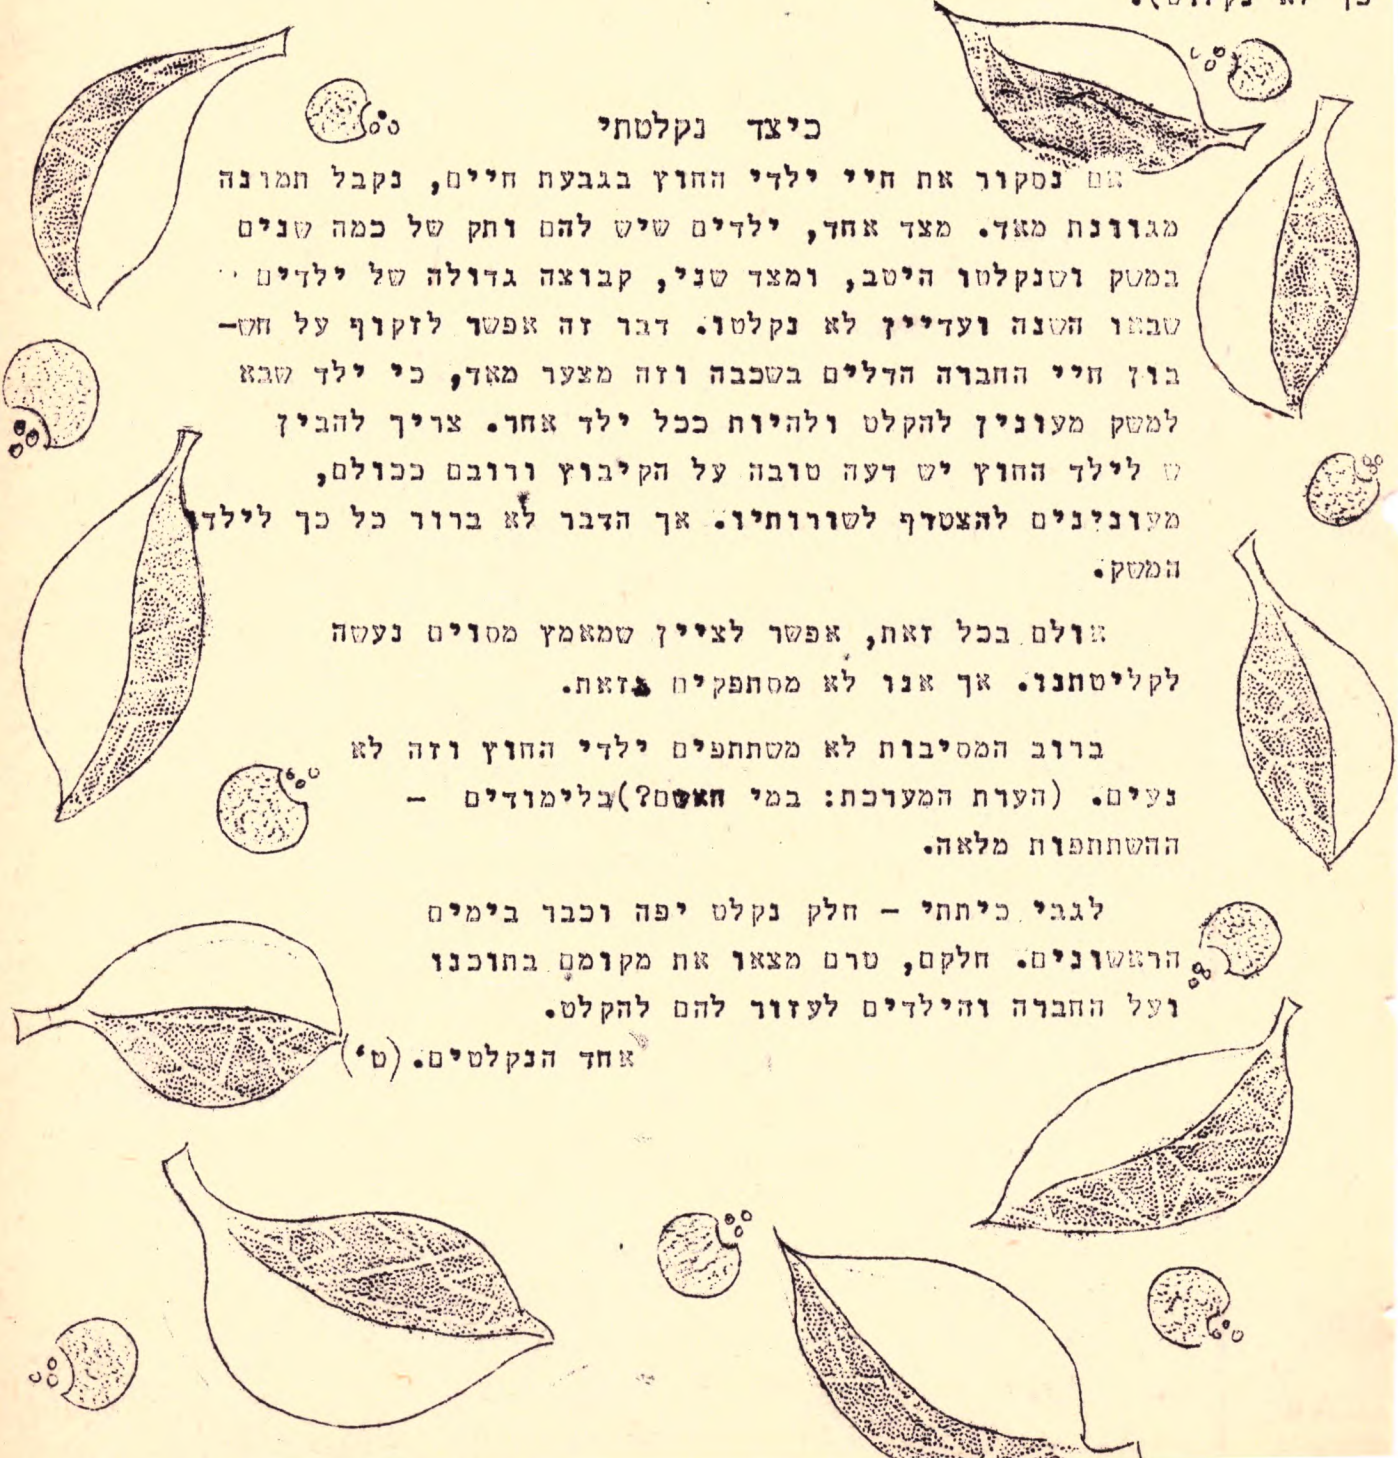 כך לא נקלוט).
כיצד נקלטתי
אם נסקור את חיי ילדי החוץ בגבעת חיים, נקבל תמונה
מגוונת מאד. מצד אחד, ילדים שיש להם ותק של כמה שנים
במשק ושנקלטו היטב, ומצד שני, קבוצה גדולה של ילדים
שבאו השנה ועדיין לא נקלטו. דבר זה אפשר לזקוף על חש-
בון חיי החברה הדלים בשכבה וזה מצער מאד, כי ילד שבא
למשק מעונין להקלט ולהיות ככל ילד אחר. צריך להבין
ש לילד החוץ יש דעה טובה על הקיבוץ ורובם ככולם,
מעונינים להצטדף לשורותיו. אך הדבר לא ברור כל כך לילדי
המשק.
אולם בכל זאת, אפשר לציין שמאמץ מסוים נעשה
לקליטתנו. אך אנו לא מסתפקים בזאת.
ברוב המסיבות לא משתתפים ילדי החוץ וזה לא
נעים. (הערת המערכת: במי האשם?)בלימודים -
ההשתתפות מלאה.
לגבי כיתתי - חלק נקלט יפה וכבר בימים
הראשונים. חלקם, טרם מצאו את מקומם בתוכנו
ועל החברה והילדים לעזור להם להקלט.
אחד הנקלטים.(ט')